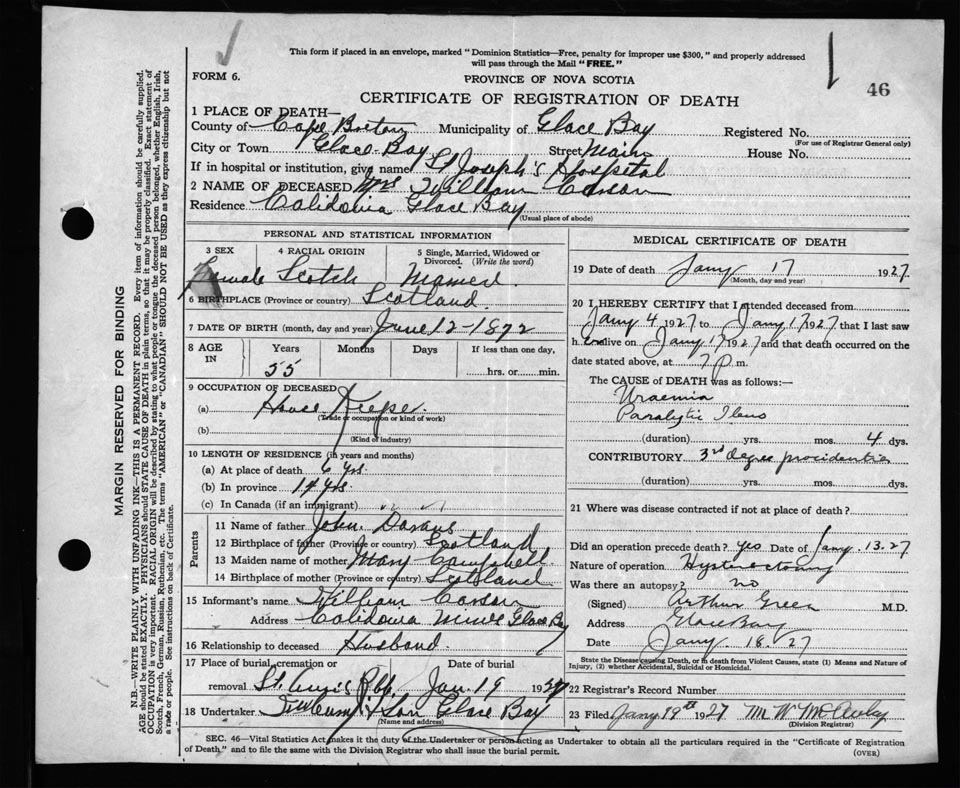 This form if placed in an envelope, marked "Dominion Statistics—Free, penalty for improper use $300," and properly addressed
will pass through the Mail "FREE."
FORM 6.
PROVINCE OF NOVA SCOTIA
46
CERTIFICATE OF REGISTRATION OF DEATH
1 PLACE OF DEATH—
County of Cape Breton Municipality of Glace Bay Registered No.
(For use of Registrar General only)
City or Town Glace Bay Street Main House No.
If in hospital or institution, give name St Joseph's Hospital
2 NAME OF DECEASED Mrs William Carson
Residence Calidonia Glace Bay
(Usual place of abode)
PERSONAL AND STATISTICAL INFORMATION
3 SEX 4 RACIAL ORIGIN 5 Single, Married, Widowed or Divorced. (Write the word)
Female Scotch Married.
6 BIRTHPLACE (Province or country) Scotland.
7 DATE OF BIRTH (month, day and year) June 12-1872
8 AGE IN Years Months Days If less than one day,
55 hrs. or min.
9 OCCUPATION OF DECEASED
(a) House
(Trade or occupation or kind of work)
(b)
(Kind of industry)
10 LENGTH OF RESIDENCE (in years and months)
(a) At place of death 6 yrs.
(b) In province 14 yrs.
(c) In Canada (if an immigrant) " "
Parents
11 Name of father John
12 Birthplace of father (Province or country) Scotland
13 Maiden name of mother Mary Campbell
14 Birthplace of mother (Province or country) Scotland
15 Informant's name William Carson
Address Calidonia Mines Glace Bay
16 Relationship to deceased Husband.
17 Place of burial, cremation or removal Date of burial
Jan. 19 1927
18 Undertaker & Son Glace Bay
(Name and address)
MEDICAL CERTIFICATE OF DEATH
19 Date of death Jany 17 1927
(Month, day and year)
20 I HEREBY CERTIFY that I attended deceased from
Jany 4 1927 to Jany 17 1927 that I last saw
h er alive on Jany 17 1927 and that death occurred on the
date stated above, at 7 p. m.
The CAUSE of DEATH was as follows:
Uraemia
Paralytic Ileus
(duration) yrs. mos. 4 dys.
CONTRIBUTORY 3rd degree procidentia
(duration) yrs. mos. dys.
21 Where was disease contracted if not at place of death?
Did an operation precede death? yes Date of Jany. 13.27
Nature of operation Hysterectomy
Was there an autopsy? no
(Signed) Arthur Green M.D.
Address Glace Bay
Date Jany. 18. 27
State the Disease causing Death, or in death from Violent Causes, state (1) Means and Nature of
Injury, (2) whether Accidental, Suicidal or Homicidal.
22 Registrar's Record Number
23 Filed Jany 19th 1927 M W
(Division Registrar)
SEC. 46—Vital Statistics Act makes it the duty of the Undertaker or person acting as Undertaker to obtain all the particulars required in the "Certificate of Registration
of Death," and to file the same with the Division Registrar who shall issue the burial permit.
(OVER)
MARGIN RESERVED FOR BINDING
N.B.—WRITE PLAINLY WITH UNFADING INK—THIS IS A PERMANENT RECORD. Every item of information should be carefully supplied.
AGE should be stated EXACTLY. PHYSICIANS should STATE CAUSE OF DEATH in plain terms, so that it may be properly classified. Exact statement of
OCCUPATION is very important. RACIAL ORIGIN will be described by stating to what people or tongue the deceased person belonged, whether English, Irish,
Scotch, French, German, Russian, Ruthenian, etc. The terms "AMERICAN" or "CANADIAN" SHOULD NOT BE USED as they express citizenship but not
a race or people. See instructions on back of Certificate.